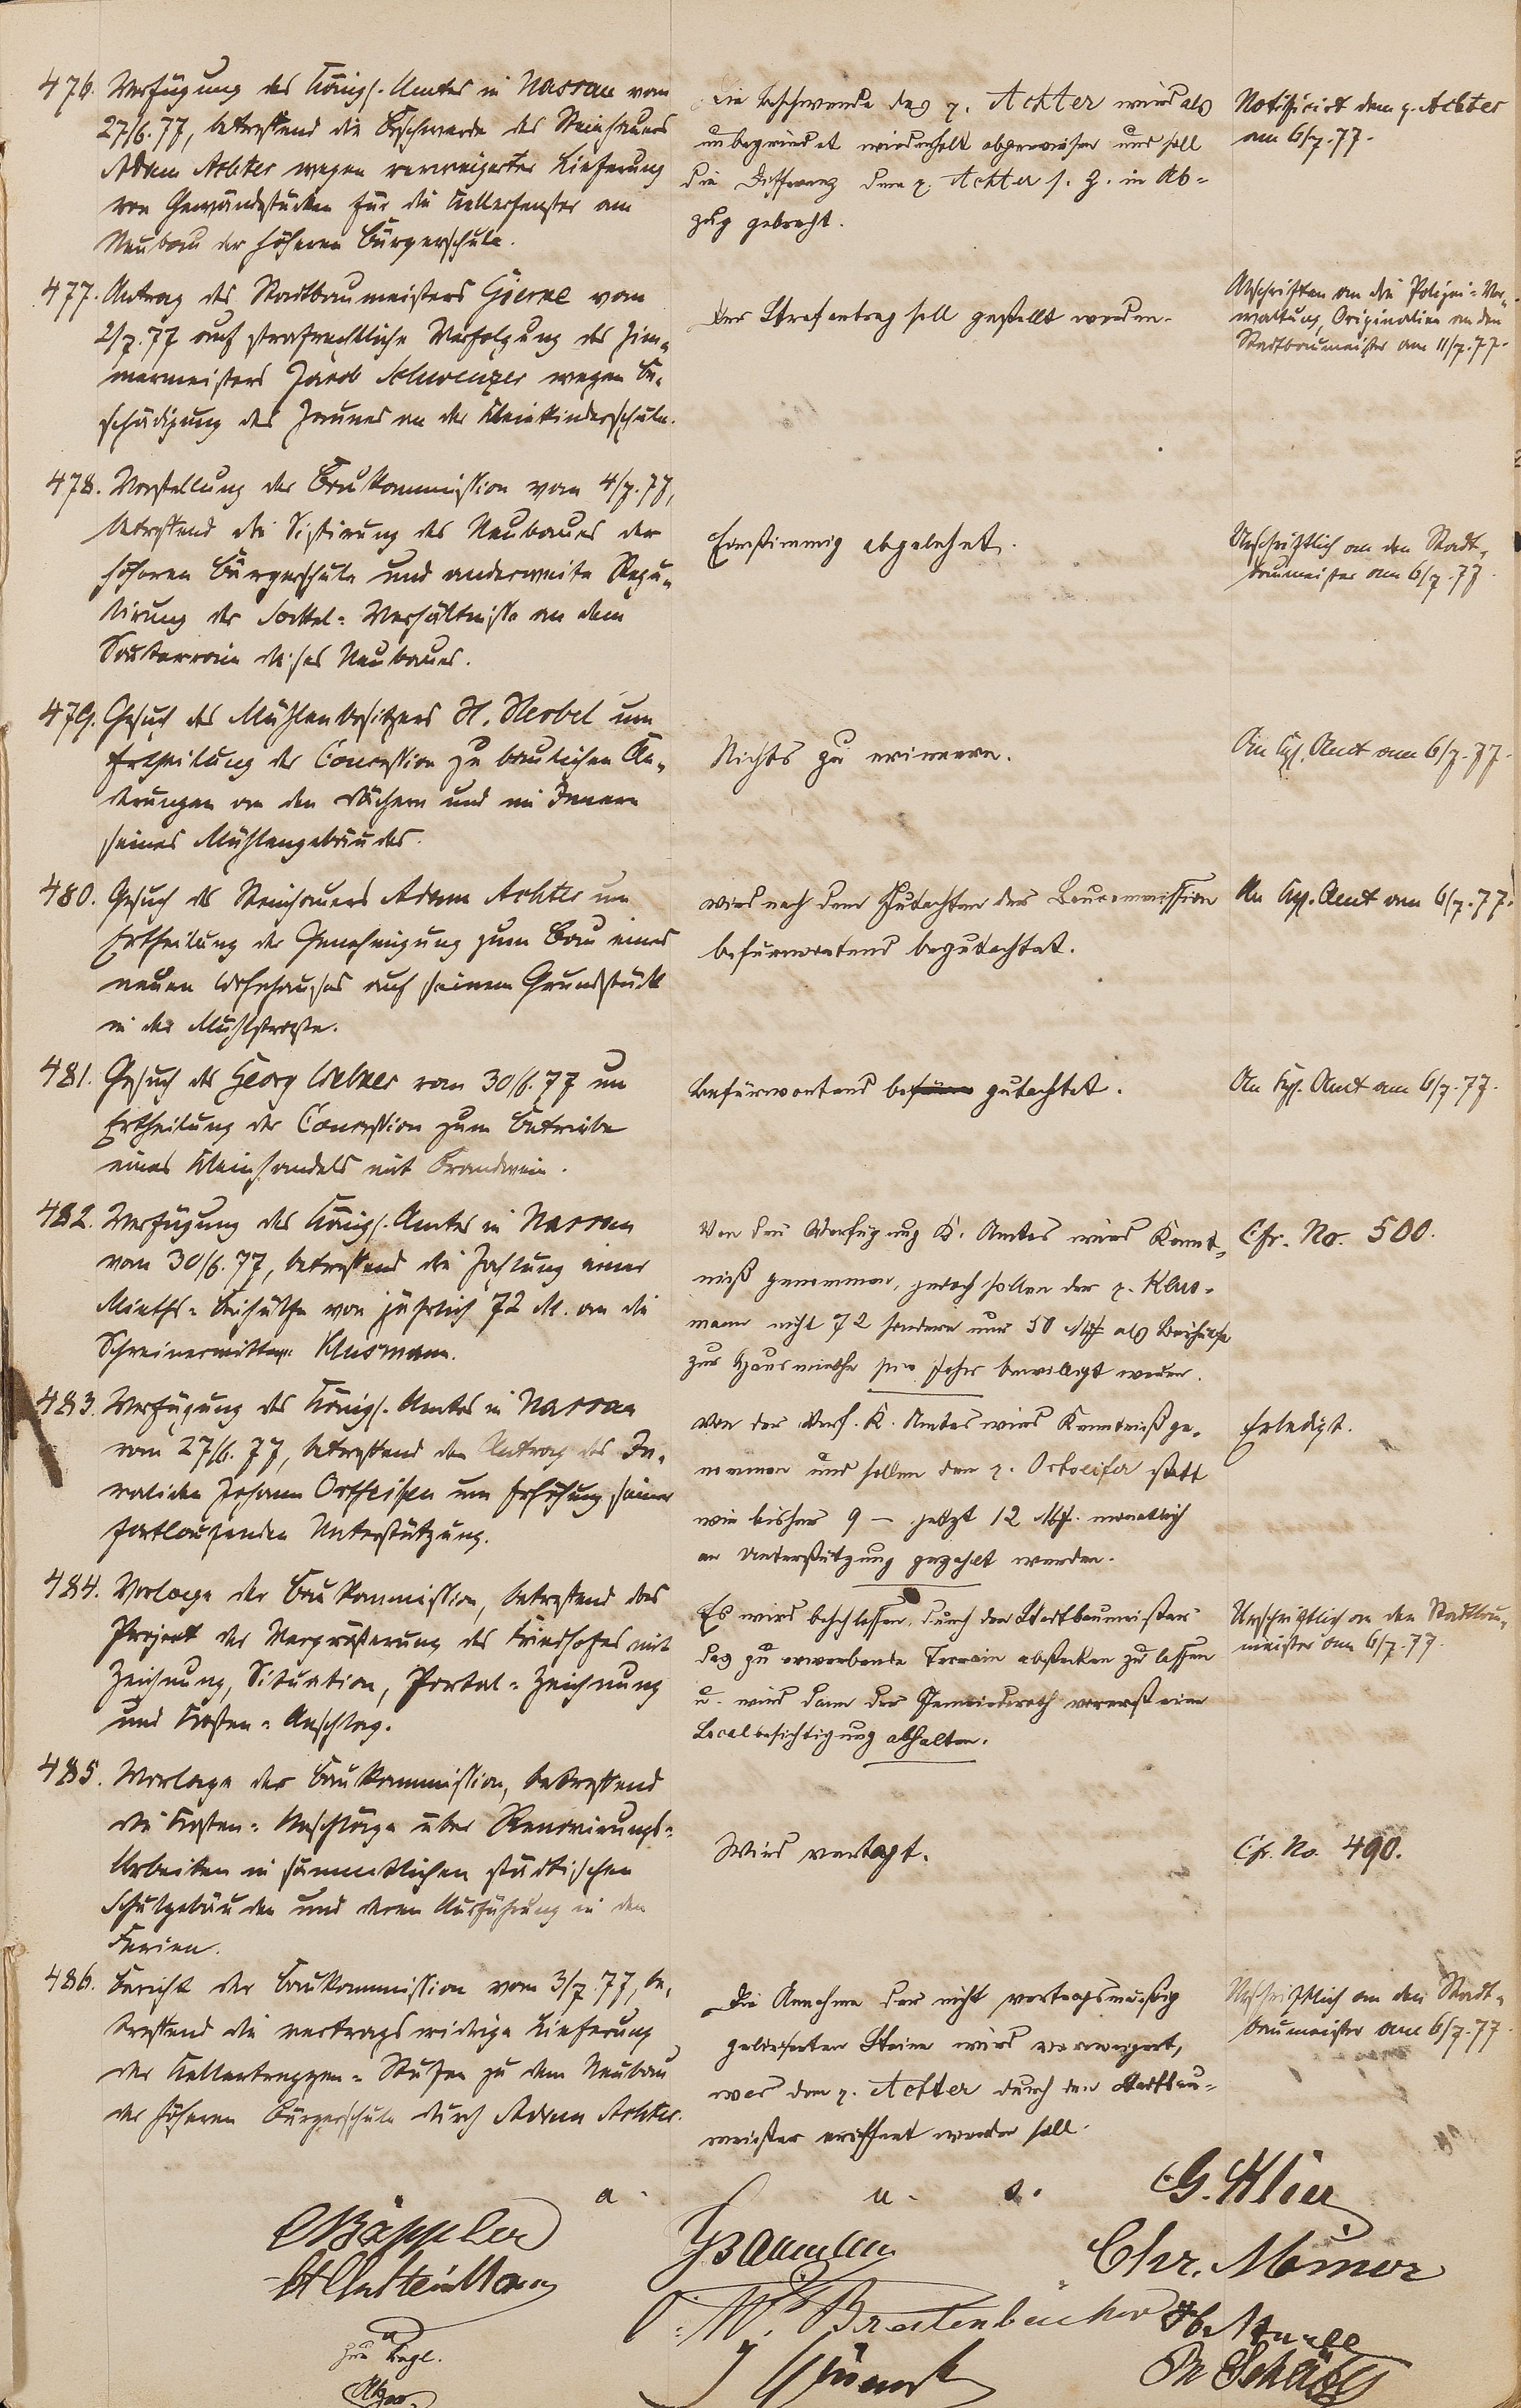 476. Verfügung des Königl. Amtes in Nassau vom
27/6. 77, betreffend die Beschwerde des Steinhauers
Adam Achter wegen verweigerter Lieferung
von Gewändstücken für die Kellerfenster am
Neubau der höheren Bürgerschule.
Die Beschwerde des p. Achter wird als
unbegründet wiederholt abgewiesen und soll
die Differenz dem p. Achter s. Z. in Ab-
zug gebracht.
Notificirt dem p. Achter
am 6/7. 77.
477. Antrag des Stadtbaumeisters Gierke vom
2/7. 77 auf strafrechtliche Verfolgung des Zim-
mermeisters Jacob Schwenzer wegen Be-
schädigung des Zaunes an der Kleinkinderschule.
Der Strafantrag soll gestellt werden.
Abschriften an die Polizei-Ver-
waltung, Originalien an den
Stadtbaumeister am 11/7. 77.
478. Vorstellung der Baukommission vom 4/7. 77,
betreffend die Sistirung des Neubaues der
höheren Bürgerschule und anderweite Regu-
lirung der Sockel-Verhältnisse an dem
Souterrain dieses Neubaues.
Einstimmig abgelehnt.
Urschriftlich an den Stadt-
baumeister am 6/7. 77.
479. Gesuch des Mühlenbesitzers H. Herbel um
Ertheilung der Concession zu baulichen Än-
derungen an den Dächern und im Innern
seines Mühlengebäudes.
Nichts zu erinnern.
An Kgl. Amt am 6/7. 77.
480. Gesuch des Steinhauers Adam Achter um
Ertheilung der Genehmigung zum Bau eines
neuen Wohnhauses auf seinem Grundstück
in der Mühlstrasse.
wird nach dem Gutachten der Baucommission
befürwortend begutachtet.
An Kgl. Amt am 6/7. 77.
481. Gesuch des Georg Weber vom 30/6. 77 um
Ertheilung der Concession zum Betriebe
eines Kleinhandels mit Brandwein.
Befürwortend begutachtet.
An Kgl. Amt am 6/7. 77.
482. Verfügung des Königl. Amtes in Nassau
vom 30/6. 77, betreffend die Zahlung einer
Mieths-Beihülfe von jährlich 72 M. an die
Schreinerwittwe Klusmann.
Von der Verfügung K. Amtes wird Kennt-
niß genommen, jedoch sollen der p. Klus-
mann nicht 72 sondern nur 50 Mk als Beihülfe
zur Hausmiethe pro Jahr bewilligt werden.
Cfr. No. 500.
483. Verfügung des Königl. Amtes in Nassau
vom 27/6. 77, betreffend den Antrag des In-
validen Johann Ortseifen um Erhöhung seiner
fortlaufenden Unterstützung.
Von der Verf. K. Amtes wird Kenntniß ge-
nommen und sollen dem p. Ortseifen statt
wie bisher 9 – jetzt 12 Mk. monatlich
an Unterstützung gezahlt werden.
Erledigt.
484. Vorlage der Baukommission, betreffend das
Project der Vergrößerung des Friedhofes mit
Zeichnung, Situation, Portal-Zeichnung
und Kosten-Anschlag.
Es wird beschlossen, durch den Stadtbaumeister
das zu erwerbende Terrain abstecken zu lassen
u. wird dann der Gemeinderath vorerst eine
Localbesichtigung abhalten.
Urschriftlich an den Stadtbau-
meister am 6/7. 77.
485. Vorlage der Baukommission, betreffend
die Kosten-Anschläge über Renovirungs-
Arbeiten in sämmtlichen städtischen
Schulgebäuden und deren Ausführung in den
Ferien.
Wird vertagt.
Cfr. No. 490.
486. Bericht der Baukommission vom 3/7 77, be-
treffend die vertragswidrige Lieferung
der Kellertreppen-Stufen zu dem Neubau
der höheren Bürgerschule durch Adam Achter.
Die Annahme der nicht vertragsmäßig
gelieferten Steine wird verweigert,
was dem p. Achter durch den Stadtbau-
meister eröffnet werden soll.
Urschriftlich an den Stadt-
baumeister am 6/7. 77.
a. u. s.
G. Klier
Chr. Minor
W. Breitenbücher